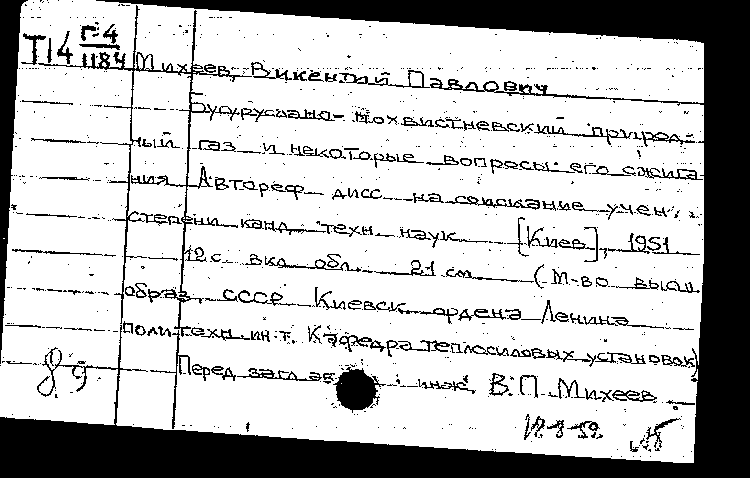 Т14 Г-4
1184
Михеев, Викентий Павлович
Бугуруслано-Похвистневский природ-
ный газ и некоторые вопросы его сжига
ния Автореф дисс на соискание учен.
степени канд. техн. наук [Киев], 1951
12 с. вкл. обл. 21 см (М-во высш.
образ. СССР Киевск. ордена Ленина
политехн. ин-т. Кафедра теплосиловых установок)
Перед загл авт: инж. В. П. Михеев
8 9.